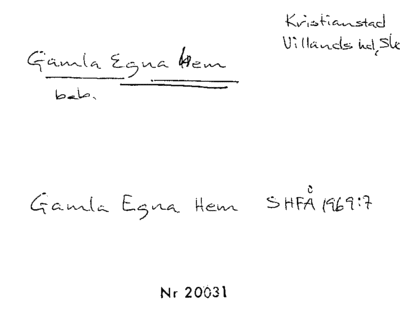 Kristianstad
Villands hd, Sk
Gamla Egna Hem
beb.
Gamla Egna Hem SHFÅ 1969:7
Nr 20031